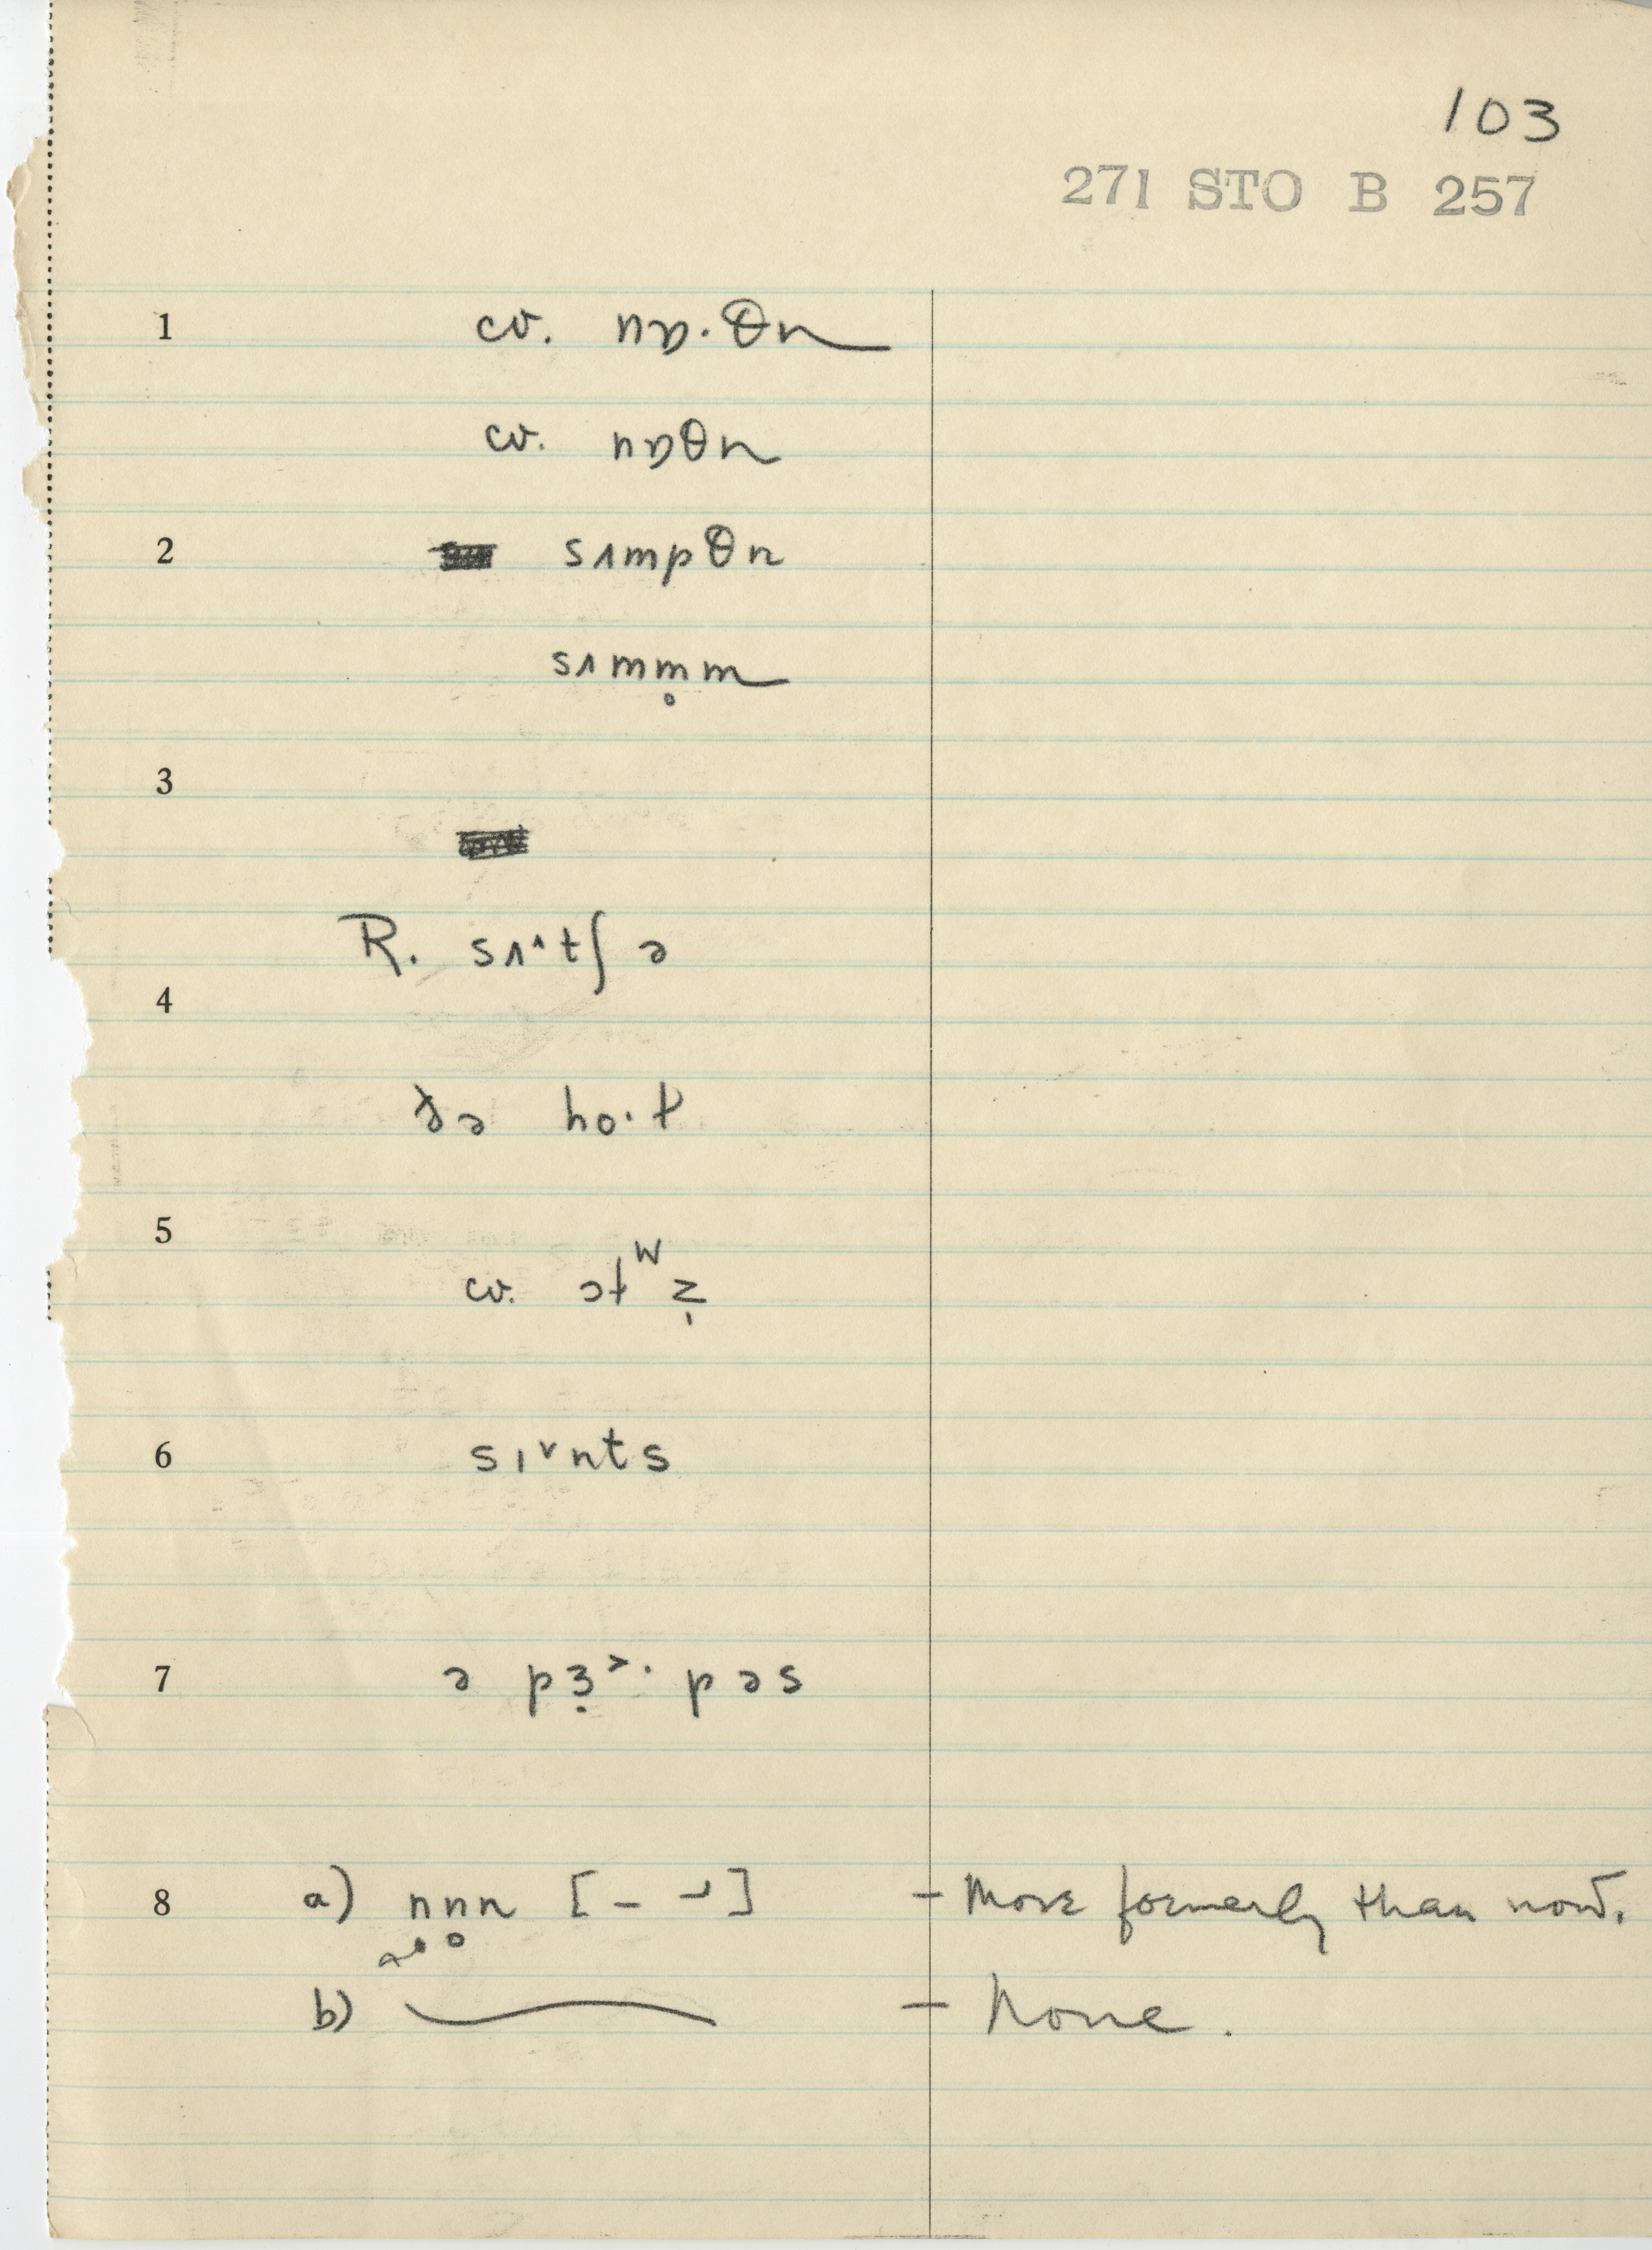 103
271 STO B 257
1 cv. nɒ·θn
cv. nɒθn
2 sʌmpθn
sʌmm̥m
3
R. sʌ^tʃ ə
4
ðə ho·t
5
cv. ət^w ẓ
6 sɪ˅nts
7 ə pɜ̣˃· pəs
8 a) nn̥n [– –́] – More formerly than now.
b) – None.